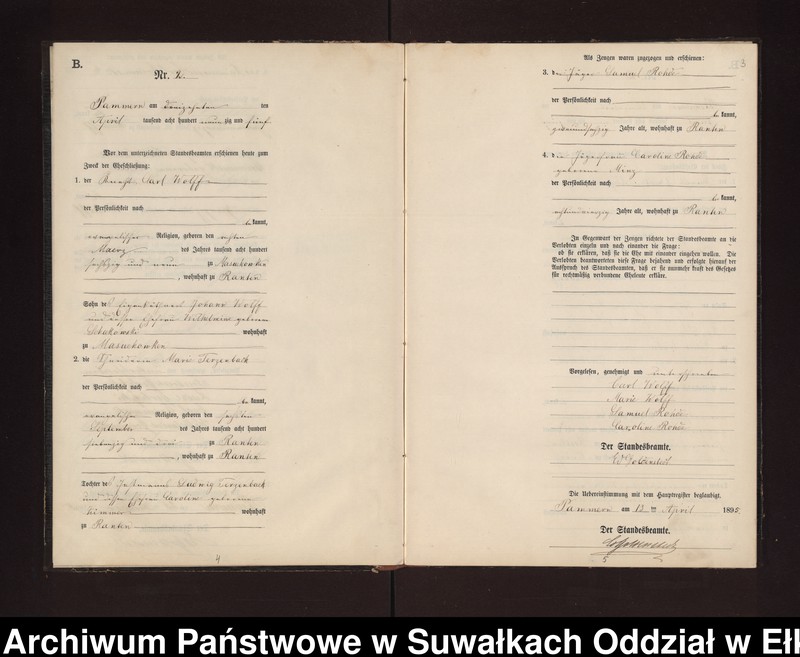 B.
Nr. 2.
Pammern am dreizehnten ten
April tausend acht hundert neun zig und fünf
Vor dem unterzeichneten Standesbeamten erschienen heute zum
Zweck der Eheschließung:
1. der Knecht Carl Wolff
der Persönlichkeit nach
be kannt,
evangelischer Religion, geboren den achten
Maerz des Jahres tausend acht hundert
sechszig und neun zu
, wohnhaft zu Ranten
Sohn des Johann Wolff
und dessen Ehefrau Wilhelmine geborene
wohnhaft
zu
2. die Marie Terzenbach
der Persönlichkeit nach
be kannt,
evangelischer Religion, geboren den
September des Jahres tausend acht hundert
siebenzig und drei zu Ranten
, wohnhaft zu Ranten
Tochter des Ludwig Terzenbach
und dessen Ehefrau Caroline geborene
wohnhaft
zu Ranten
4
Als Zeugen waren zugezogen und erschienen:
3. der Samuel Rohde
der Persönlichkeit nach
be kannt,
Jahre alt, wohnhaft zu Ranten
4. die Caroline Rohde
geborene
der Persönlichkeit nach
be kannt,
Jahre alt, wohnhaft zu Ranten
In Gegenwart der Zeugen richtete der Standesbeamte an die
Verlobten einzeln und nach einander die Frage:
ob sie erklären, daß sie die Ehe mit einander eingehen wollen. Die
Verlobten beantworteten diese Frage bejahend und erfolgte hierauf der
Ausspruch des Standesbeamten, daß er sie nunmehr kraft des Gesetzes
für rechtmäßig verbundene Eheleute erkläre.
Vorgelesen, genehmigt und unterschrieben
Carl Wolff
Marie Wolff
Samuel Rohde
Caroline Rohde
Der Standesbeamte.
Die Uebereinstimmung mit dem Hauptregister beglaubigt.
Pammern am 13 ten April 1895
Der Standesbeamte.
5
Archiwum Państwowe w Suwałkach Oddział w Ełk